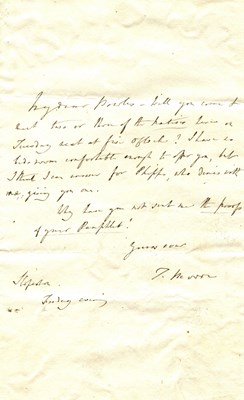 My dear Bowles – Will you come &
meet two or three of the natives here on
Tuesday next at five o'clock? I have no
bed-room comfortable enough to offer you, but
I think I can answer for Phipps, who dines with
me, giving you one.
Why have you not sent me the proofs
of your Pamphlet?
Yours ever
T. Moore
Sloperton
Friday evening